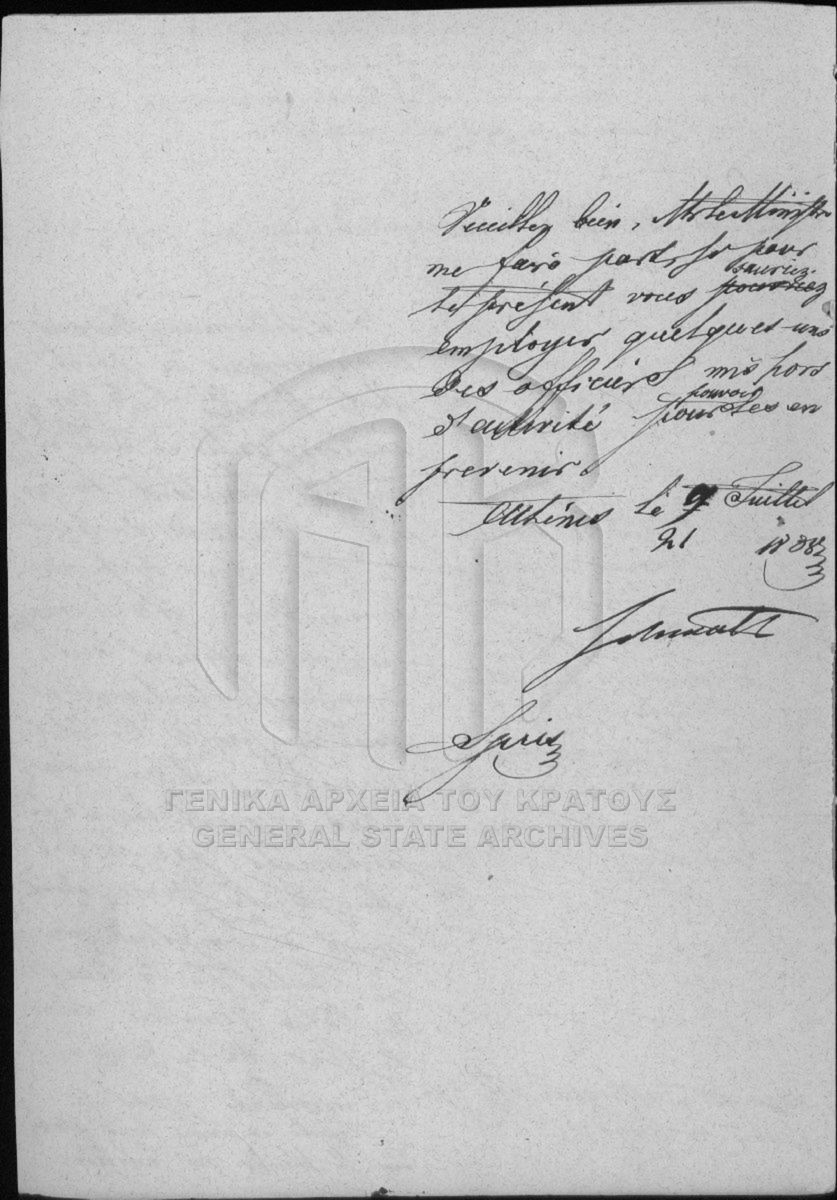 Veuillez bien, Mr le Ministre
me faire part, si pour
sauriez
le présent vous pourriez
employer quelques-uns
des officiers mis hors
pouvoir
d'activité pour les en
prevenir.
Athènes le 9 Juillet
21 1838
Schmaltz
Spiris
ΓΕΝΙΚΑ ΑΡΧΕΙΑ ΤΟΥ ΚΡΑΤΟΥΣ
GENERAL STATE ARCHIVES